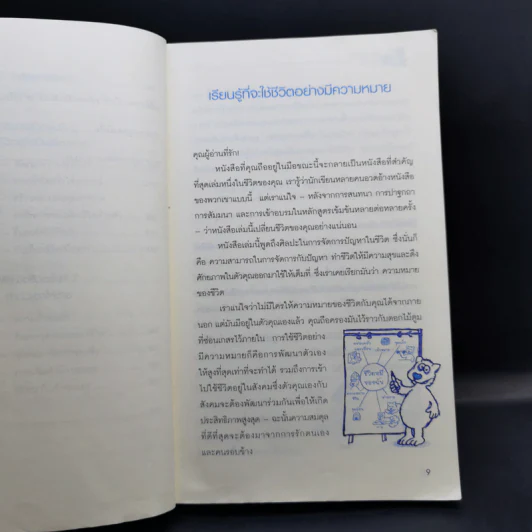 เรียนรู้ที่จะใช้ชีวิตอย่างมีความหมาย
คุณผู้อ่านที่รัก!
หนังสือที่คุณถืออยู่ในมือขณะนี้จะกลายเป็นหนังสือที่สำคัญ
ที่สุดเล่มหนึ่งในชีวิตของคุณ เรารู้ว่านักเขียนหลายคนอวดอ้างหนังสือ
ของพวกเขาแบบนี้ แต่เราแน่ใจ – หลังจากการสนทนา การปาฐกถา
การสัมมนา และการเข้าอบรมในหลักสูตรเข้มข้นหลายต่อหลายครั้ง
– ว่าหนังสือเล่มนี้เปลี่ยนชีวิตของคุณอย่างแน่นอน
หนังสือเล่มนี้พูดถึงศิลปะในการจัดการปัญหาในชีวิต ซึ่งนั่นก็
คือ ความสามารถในการจัดการกับปัญหา ทำชีวิตให้มีความสุขและดึง
ศักยภาพในตัวคุณออกมาใช้ให้เต็มที่ ซึ่งเราเคยเรียกมันว่า ความหมาย
ของชีวิต
เราแน่ใจว่าไม่มีใครให้ความหมายของชีวิตกับคุณได้จากภาย
นอก แต่มันมีอยู่ในตัวคุณเองแล้ว คุณถือครองมันไว้ราวกับดอกไม้ตูม
ที่ซ่อนเกสรไว้ภายใน การใช้ชีวิตอย่าง
มีความหมายก็คือการพัฒนาตัวเอง
ให้สูงที่สุดเท่าที่จะทำได้ รวมถึงการเข้า
ไปใช้ชีวิตอยู่ในสังคมซึ่งตัวคุณเองกับ
สังคมจะต้องพัฒนาร่วมกันเพื่อให้เกิด
ประสิทธิภาพสูงสุด – ฉะนั้นความสมดุล
ที่ดีที่สุดจะต้องมาจากการรักตนเอง
และคนรอบข้าง
ชีวิตที่มี
9